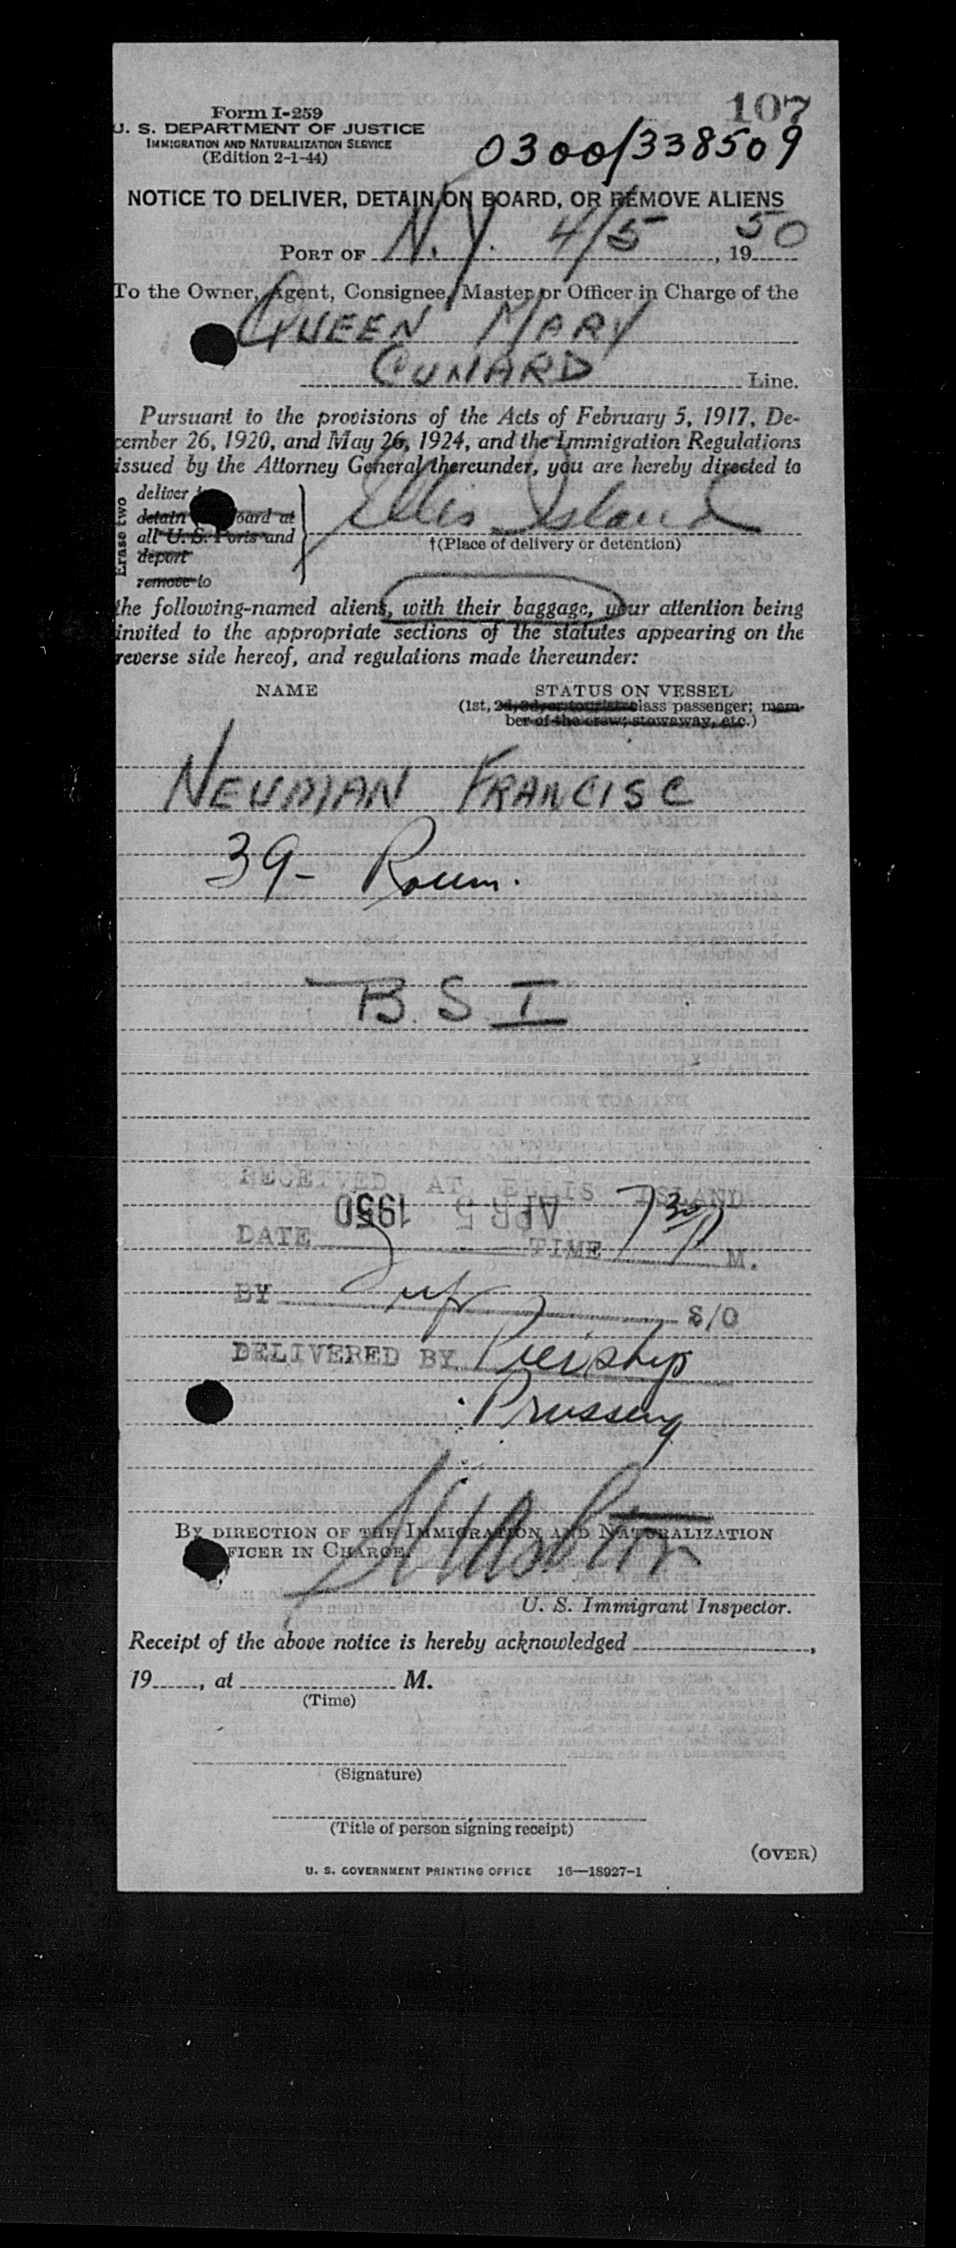 107
Form I-259
U. S. DEPARTMENT OF JUSTICE
IMMIGRATION AND NATURALIZATION SERVICE
(Edition 2-1-44)
0300/338509
NOTICE TO DELIVER, DETAIN ON BOARD, OR REMOVE ALIENS
PORT OF N.Y. 4/5, 1950
To the Owner, Agent, Consignee, Master or Officer in Charge of the
QUEEN MARY
CUNARD Line.
Pursuant to the provisions of the Acts of February 5, 1917, De-
cember 26, 1920, and May 26, 1924, and the Immigration Regulations
issued by the Attorney General thereunder, you are hereby directed to
Erase two
deliver
detain board at
all U. S. Ports and
deport
remove to
Ellis Island
†(Place of delivery or detention)
the following-named aliens, with their baggage, your attention being
invited to the appropriate sections of the statutes appearing on the
reverse side hereof, and regulations made thereunder:
NAME STATUS ON VESSEL
(1st, 2d, 3d, or tourist class passenger; mem-
ber of the crew; stowaway, etc.)
NEUMAN FRANCISC
39- Roum.
B. S I
RECEIVED AT ELLIS ISLAND
DATE APR 5 1950 TIME 7 30 P M.
BY S/O
DELIVERED BY Pier ship
Prussing
BY DIRECTION OF THE IMMIGRATION AND NATURALIZATION
FICER IN CHARGE.
U. S. Immigrant Inspector.
Receipt of the above notice is hereby acknowledged ,
19 , at M.
(Time)
(Signature)
(Title of person signing receipt)
(OVER)
U. S. GOVERNMENT PRINTING OFFICE 16—18927-1